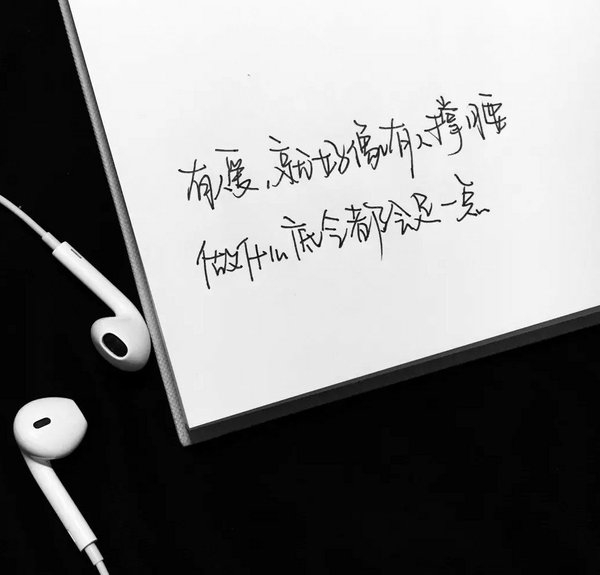 有爱,就好像有人撑腰
做什么底气都会足一点